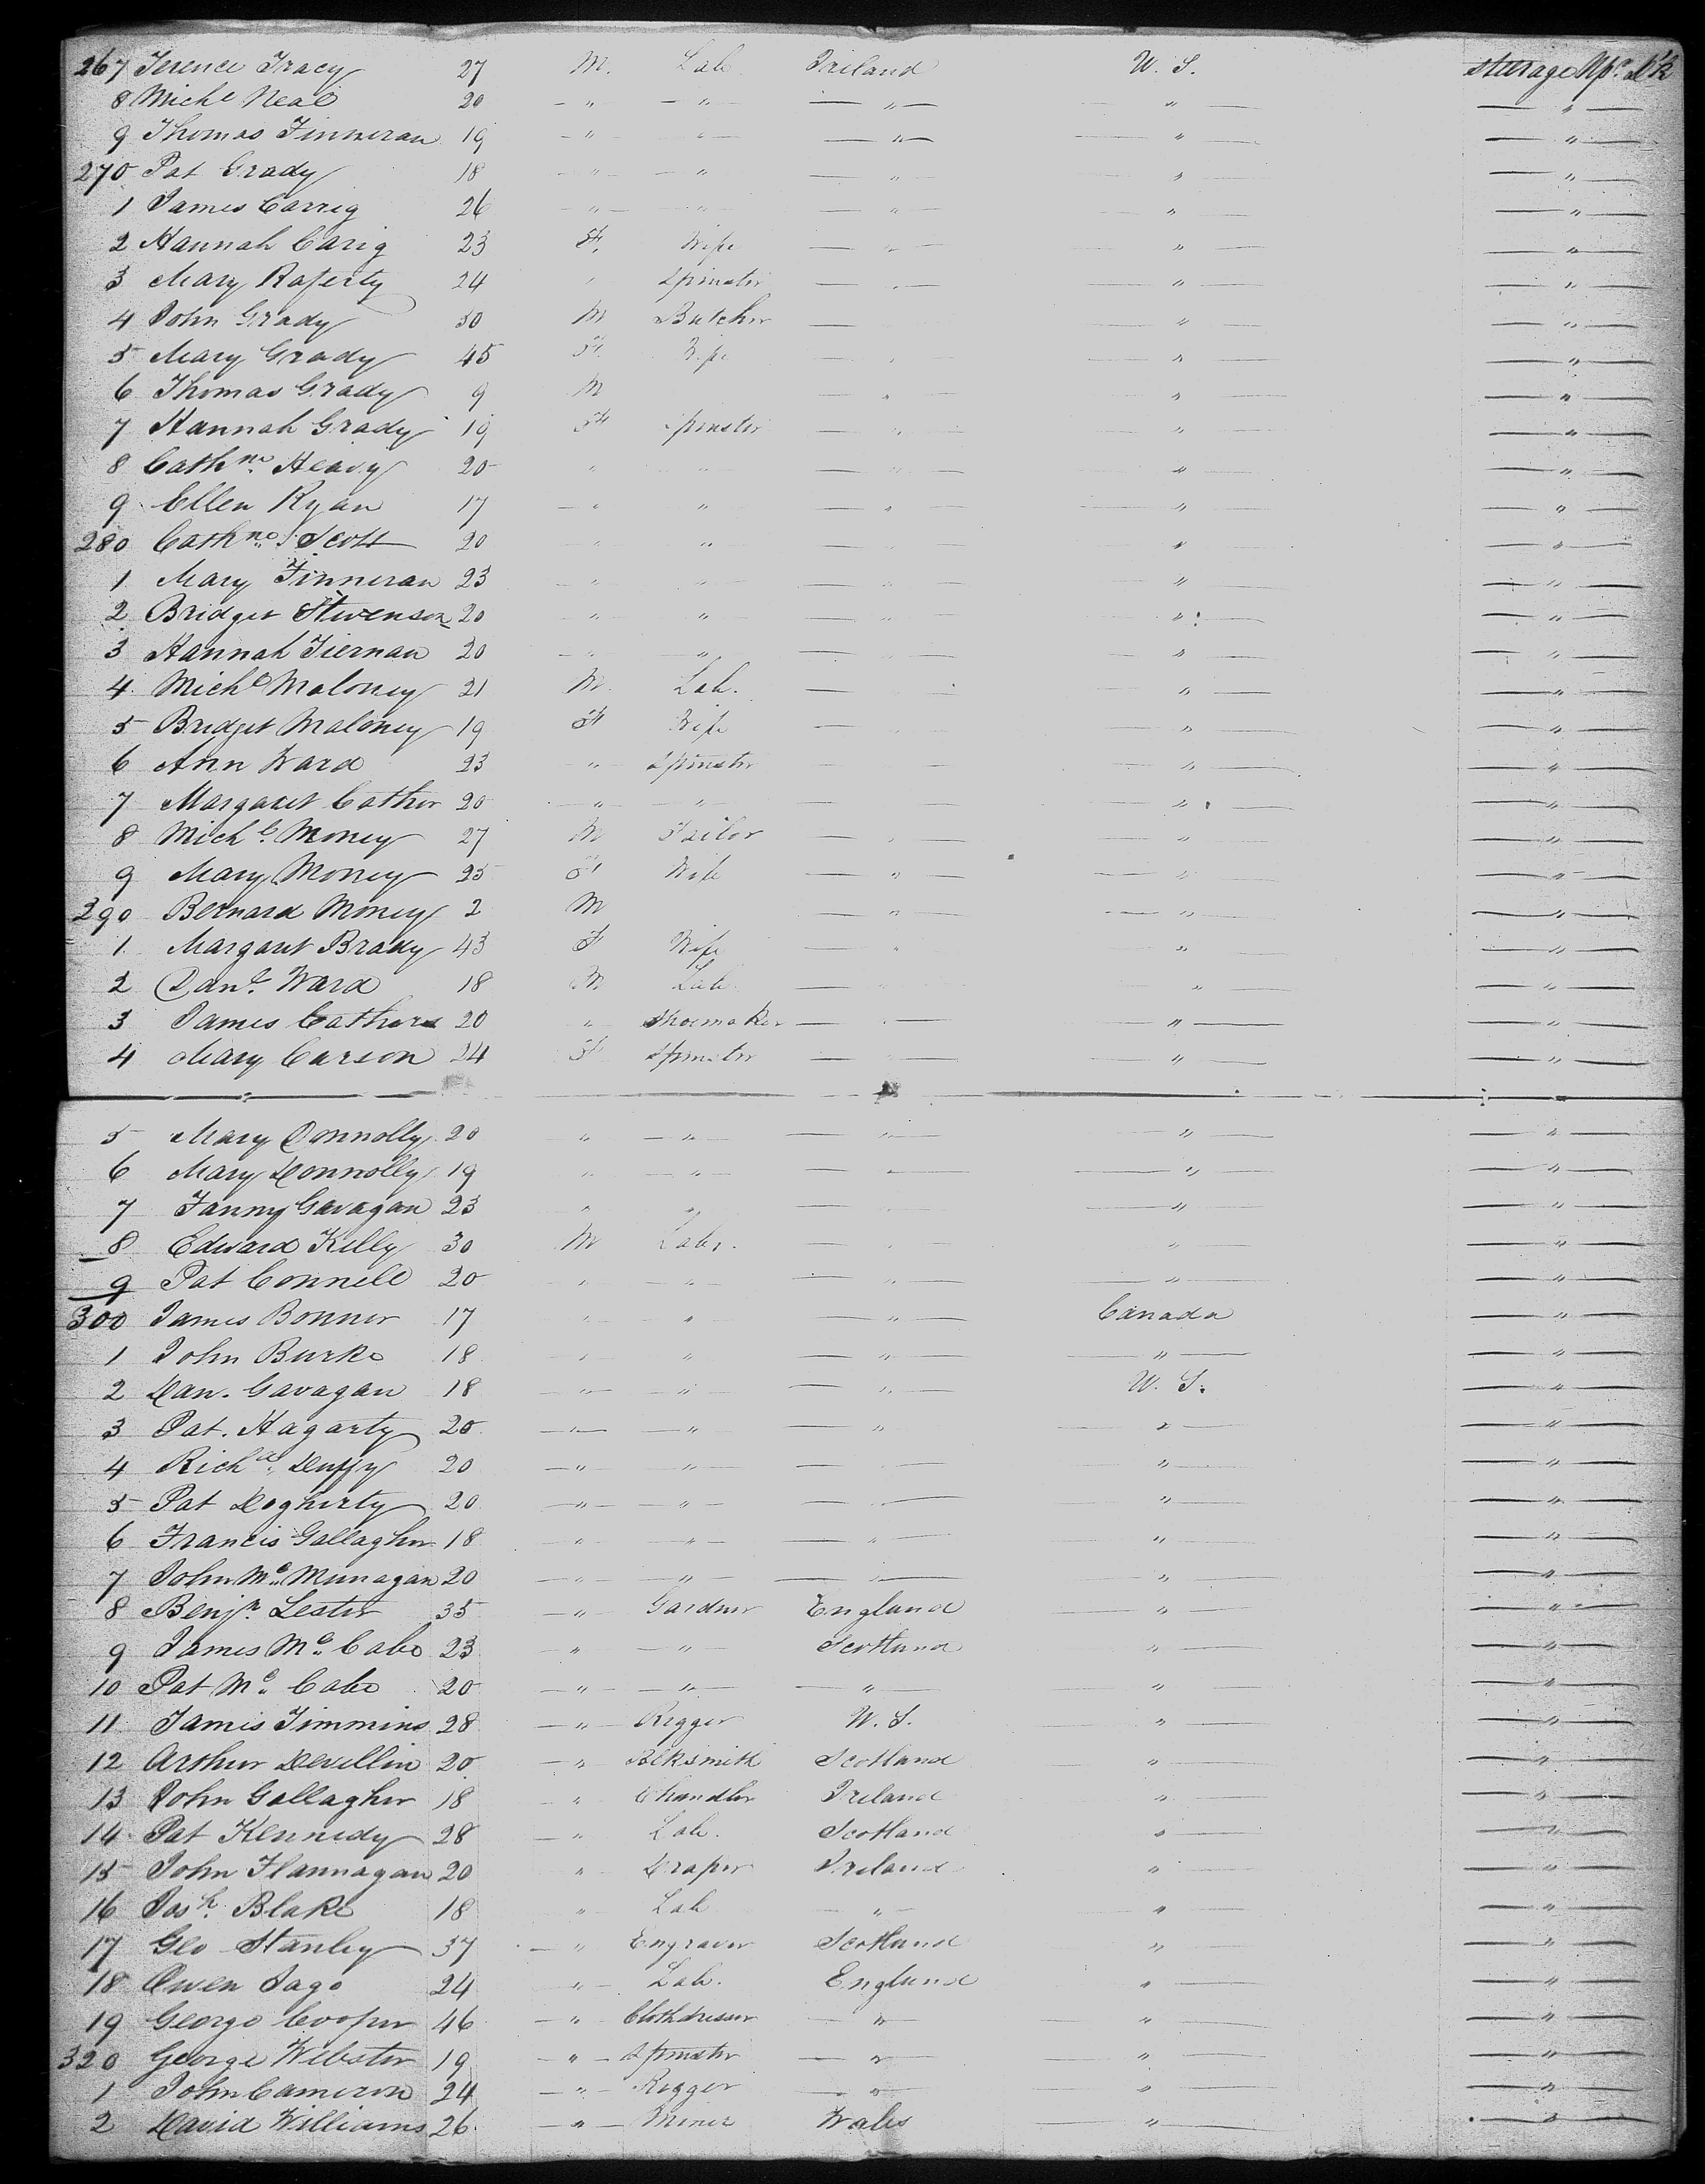 267 Terence Tracy 27 M. Lab Ireland U. S. steerage Upr. dk
8 Michl Neal 20 " " " " "
9 Thomas Finneran 19 " " " " "
270 Pat Grady 18 " " " " "
1 James Carrig 26 " " " " "
2 Hannah Carig 23 F. Wife " " "
3 Mary Raferty 24 " Spinster " " "
4 John Grady 50 M Butcher " " "
5 Mary Grady 45 F. Wife " " "
6 Thomas Grady 9 M " " "
7 Hannah Grady 19 F Spinster " " "
8 Cathne. Heavy 20 " " " " "
9 Ellen Ryan 17 " " " " "
280 Cathne. Scott 20 " " " " "
1 Mary Finneran 23 " " " " "
2 Bridget Stevenson 20 " " " " "
3 Hannah Tiernan 20 " " " " "
4 Michl Maloney 21 M. Lab. " " "
5 Bridget Maloney 19 F Wife " " "
6 Ann Ward 23 " Spinster " " "
7 Margaret Cather 20 " " " " "
8 Michl. Money 27 M Tailor " " "
9 Mary Money 25 F Wife " " "
290 Bernard Money 2 M " " "
1 Margaret Brady 43 F Wife " " "
2 Danl. Ward 18 M Lab. " " "
3 James Cathers 20 " Shoemaker " " "
4 Mary Carson 24 F Spinster " " "
5 Mary Connolly 20 " " " " "
6 Mary Donnolly 19 " " " " "
7 Fanny Gavagan 23 " " " " "
8 Edward Kelly 30 M Labr. " " "
9 Pat Connell 20 " " " " "
300 James Bonner 17 " " " Canada "
1 John Burke 18 " " " " "
2 Dan. Gavagan 18 " " " U. S. "
3 Pat. Hagarty 20 " " " " "
4 Richd. Duffy 20 " " " " "
5 Pat Dogherty 20 " " " " "
6 Francis Gallagher 18 " " " " "
7 John Mc Munagan 20 " " " " "
8 Benjn. Lester 35 " Gardner England " "
9 James Mc Cabe 23 " " Scotland " "
10 Pat Mc Cabe 20 " " " " "
11 James Timmins 28 " Rigger U. S. " "
12 Arthur Devillin 20 " Blksmith Scotland " "
13 John Gallagher 18 " Chandler Ireland " "
14 Pat Kennedy 28 " Lab. Scotland " "
15 John Flannagan 20 " Draper Ireland " "
16 Josh. Blake 18 " Lab " " "
17 Geo Stanley 37 " Engraver Scotland " "
18 Owen Jago 24 " Lab. England " "
19 George Cooper 46 " Clothdresser " " "
320 George Webster 19 " Spinster " " "
1 John Cameron 24 " Rigger " " "
2 David Williams 26 " Miner Wales " "